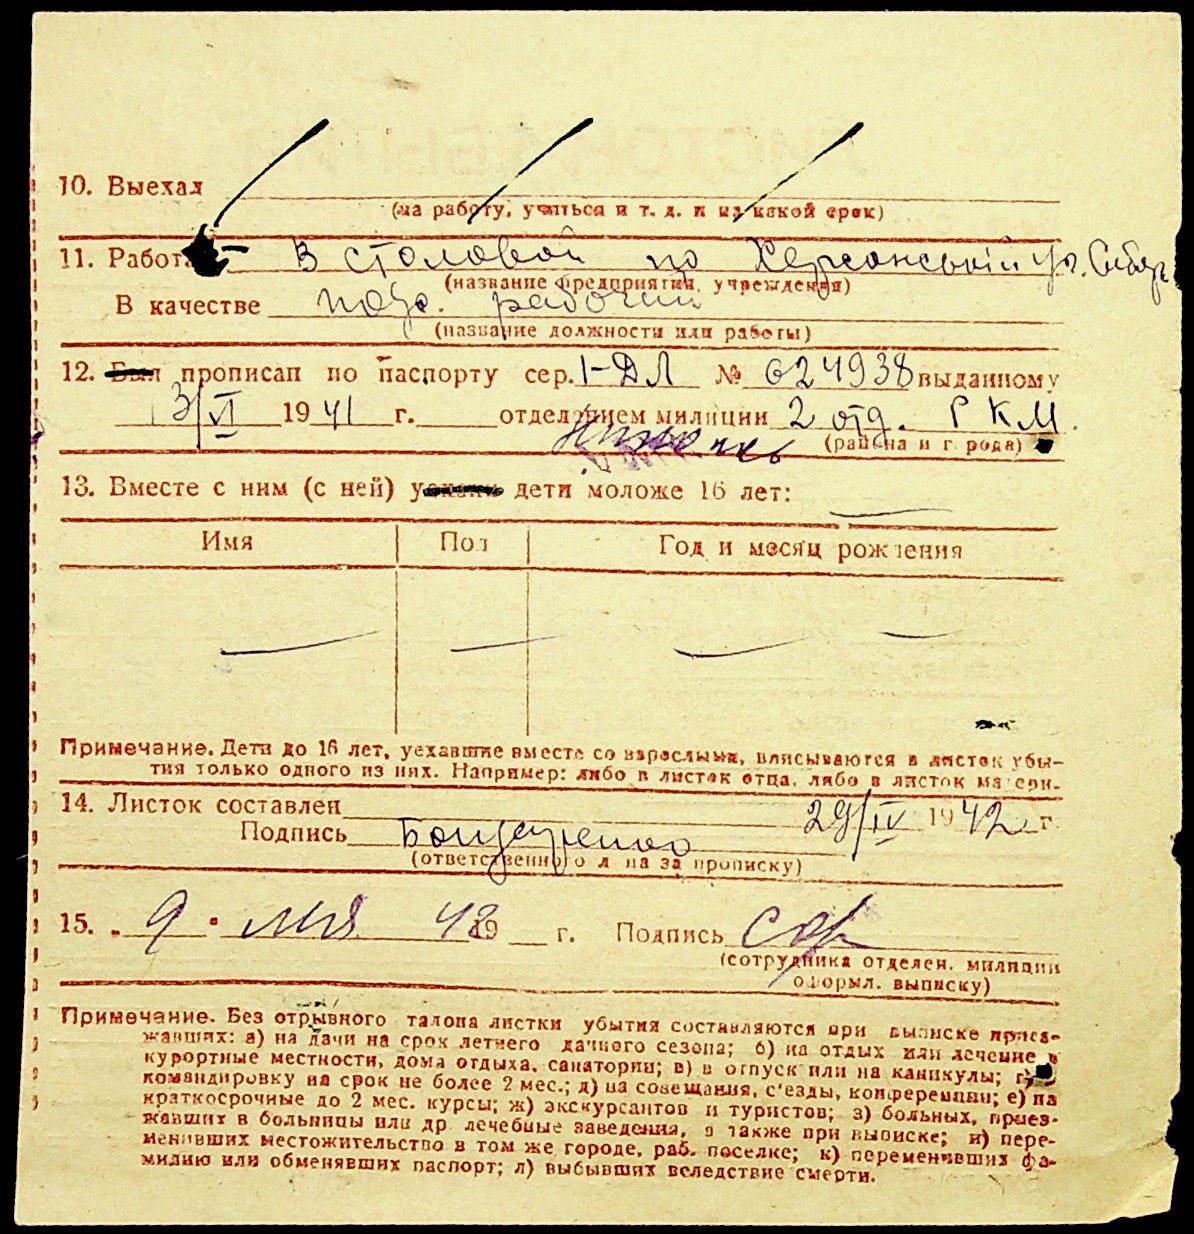 10. Выехал
(на работу, учиться и т. д. и на какой срок)
11. Работ В столовой по Херсонській ул. Сибир
(название предприятия, учреждения)
В качестве подс. рабочий
(название должности или работы)
12. Был прописан по паспорту сер. I-ДЛ № 624938 выданному
3/VI 1941 г. отделением милиции 2 отд. РКМ.
(района и города)
13. Вместе с ним (с ней) дети моложе 16 лет: —
Имя Пол Год и месяц рождения
— — — —
Примечание. Дети до 16 лет, уехавшие вместе со взрослыми, вписываются в листок убы-
тия только одного из них. Например: либо в листок отца, либо в листок матери.
14. Листок составлен 29/IV 1942 г.
Подпись Бондаренко
(ответственного лица за прописку)
15. 9 • мая 42 19 г. Подпись
(сотрудника отделен. милиции
оформл. выписку)
Примечание. Без отрывного талона листки убытия составляются при выписке приез-
жавших: а) на дачи на срок летнего дачного сезона; б) на отдых или лечение в
курортные местности, дома отдыха, санатории; в) в отпуск или на каникулы; г) в
командировку на срок не более 2 мес.; д) на совещания, с'езды, конференции; е) на
краткосрочные до 2 мес. курсы; ж) экскурсантов и туристов; з) больных, приез-
жавших в больницы или др лечебные заведения, а также при выписке; и) пере-
менивших местожительство в том же городе, раб. поселке; к) переменивших фа-
милию или обменявших паспорт; л) выбывших вследствие смерти.